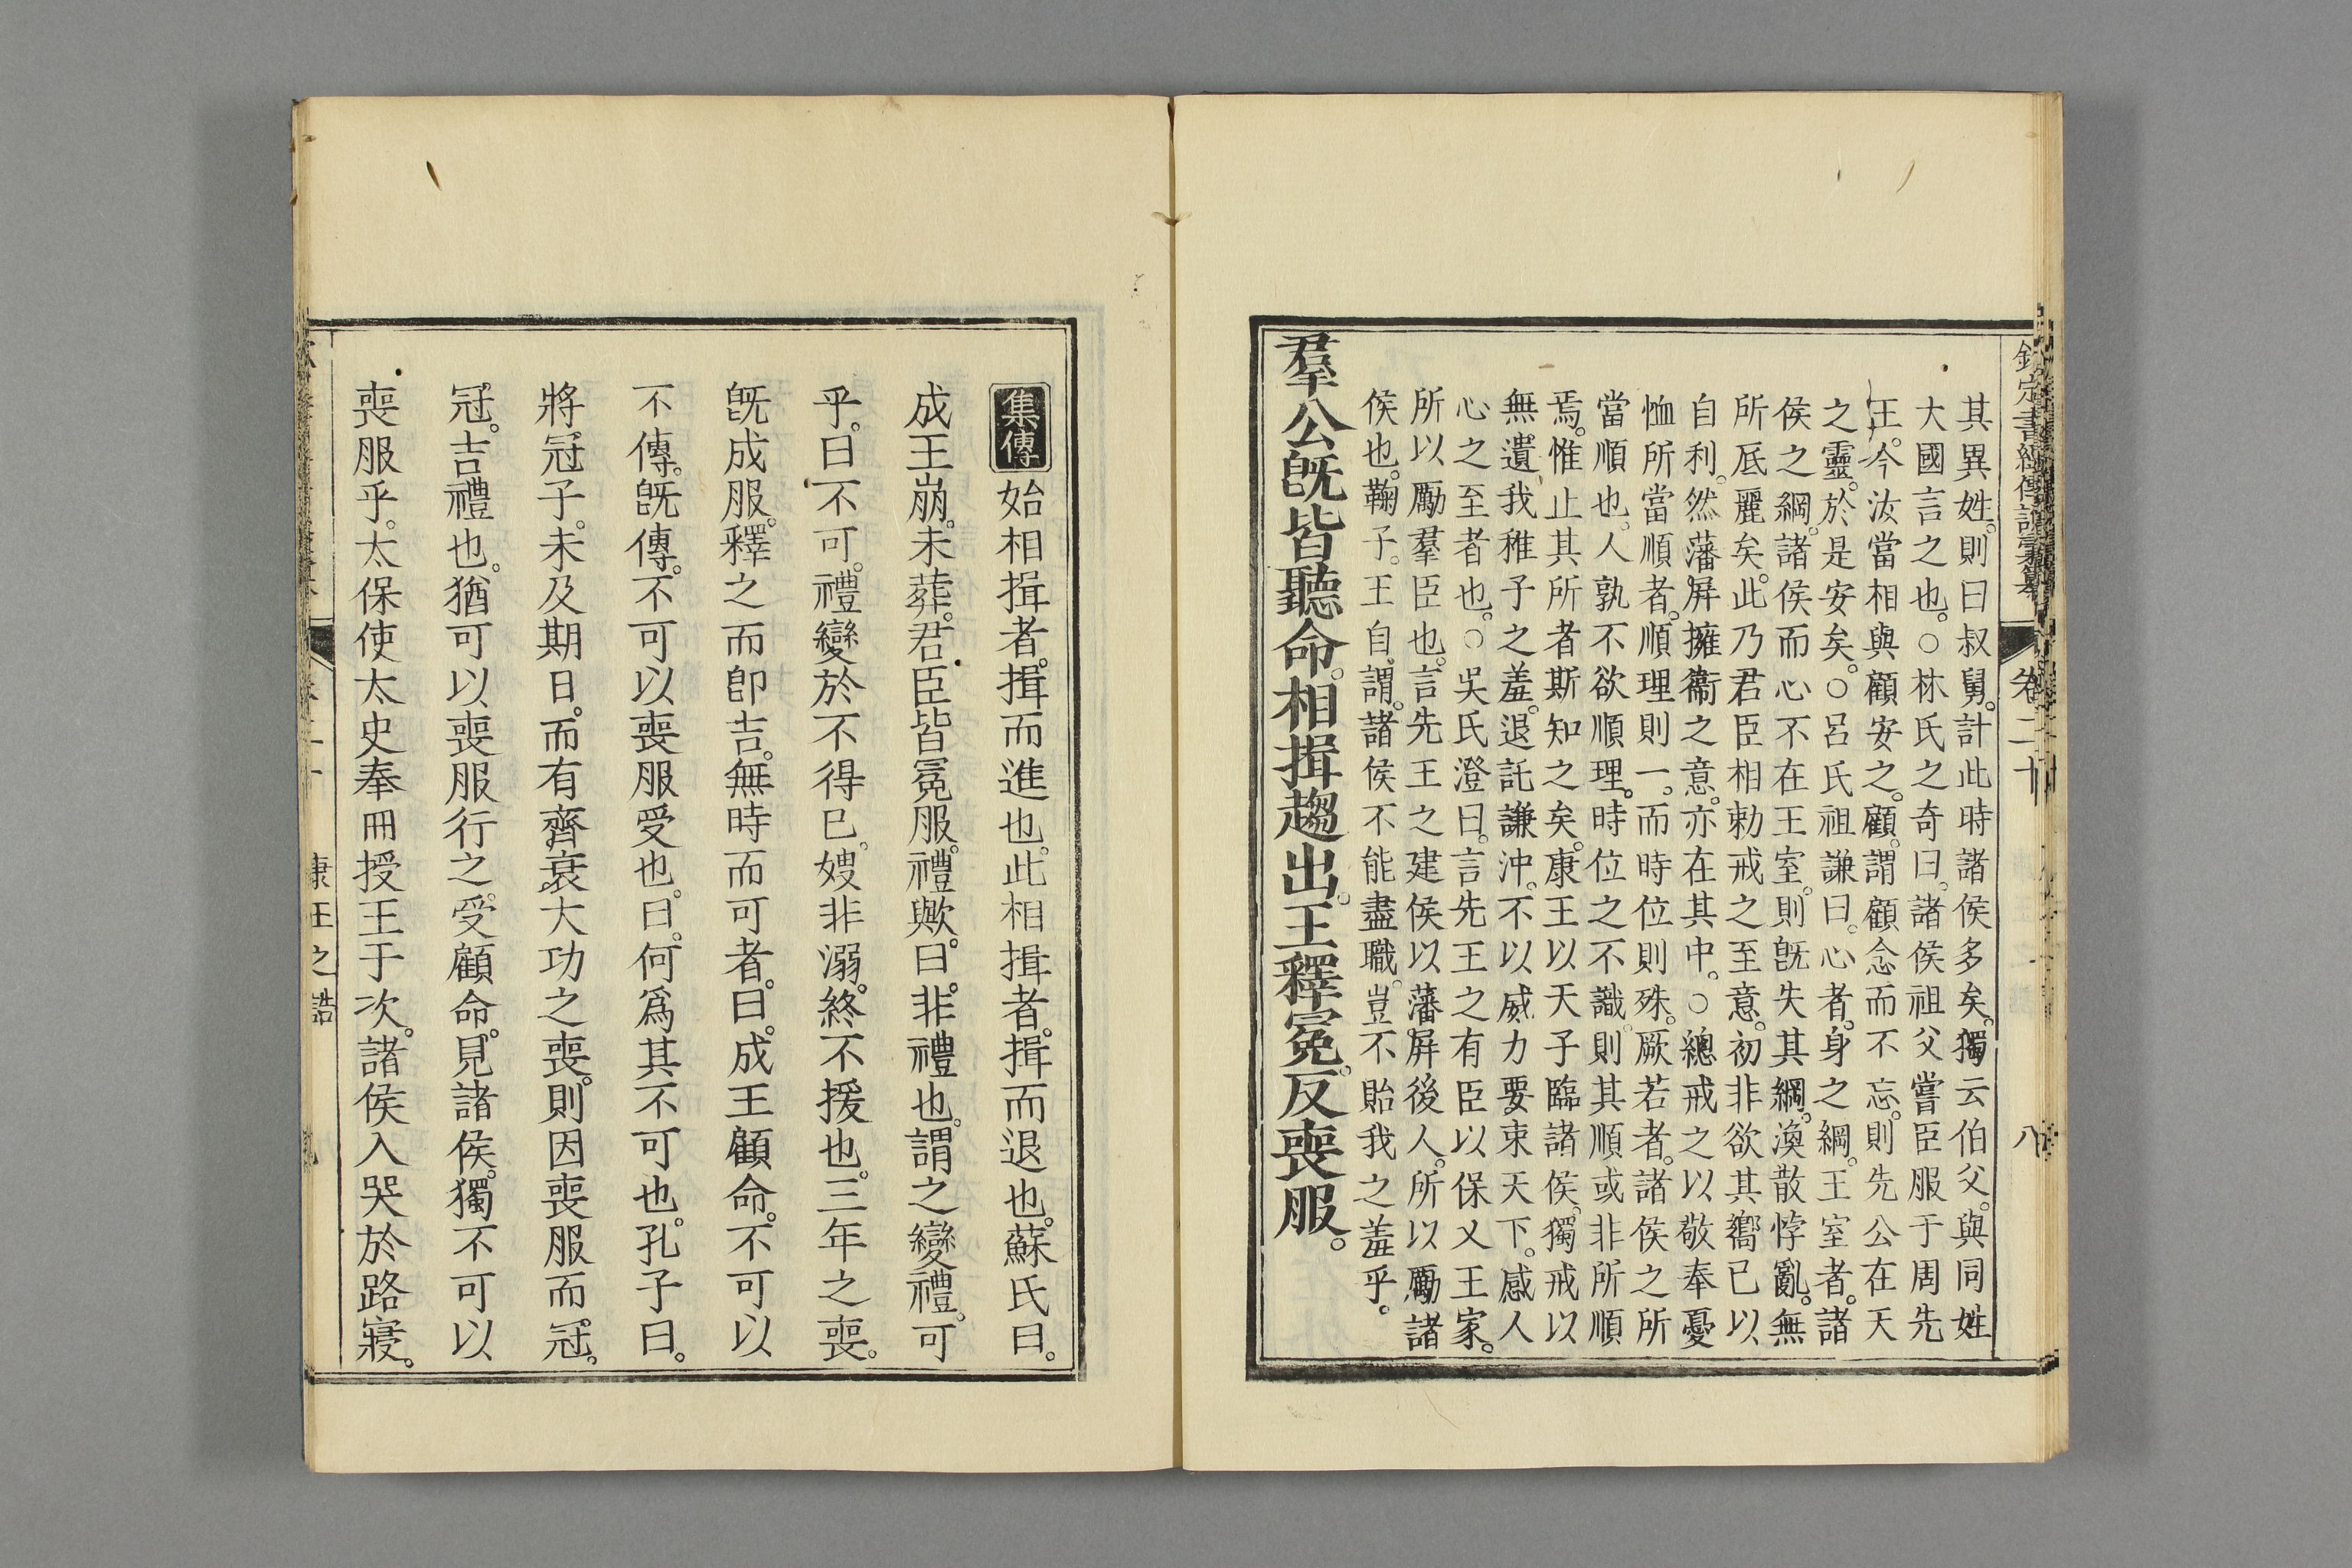 欽定書經傳說彙纂 卷二十 八
其異姓。則曰叔舅。計此時諸侯多矣。獨云伯父。與同姓
大國言之也。○林氏之奇曰。諸侯祖父嘗臣服于周先
王。今汝當相與顧安之。顧。謂顧念而不忘。則先公在天
之靈。於是安矣。○呂氏祖謙曰。心者。身之綱。王室者。諸
侯之綱。諸侯而心不在王室。則旣失其綱。渙散悖亂。無
所厎麗矣。此乃君臣相勅戒之至意。初非欲其嚮已以
自利。然藩屏擁衞之意。亦在其中。○總戒之以敬奉憂
恤所當順者。順理則一。而時位則殊。厥若者。諸侯之所
當順也。人孰不欲順理。時位之不識。則其順或非所順
焉。惟止其所者斯知之矣。康王以天子臨諸侯。獨戒以
無遺我稚子之羞。退託謙沖。不以威力要束天下。感人
心之至者也。○吳氏澄曰。言先王之有臣以保乂王家。
所以勵羣臣也。言先王之建侯以藩屏後人。所以勵諸
侯也。鞠子。王自謂。諸侯不能盡職。豈不貽我之羞乎。
羣公旣皆聽命。相揖趨出。王釋冕。反喪服。
集傳 始相揖者。揖而進也。此相揖者。揖而退也。蘇氏曰。
成王崩。未葬。君臣皆冕服。禮歟。曰。非禮也。謂之變禮。可
乎。曰不可。禮變於不得已。嫂非溺。終不援也。三年之喪。
旣成服。釋之而卽吉。無時而可者。曰。成王顧命。不可以
不傳。旣傳。不可以喪服受也。曰。何爲其不可也。孔子曰。
將冠子。未及期日。而有齊衰大功之喪。則因喪服而冠。
冠。吉禮也。猶可以喪服行之。受顧命。見諸侯。獨不可以
喪服乎。太保使太史奉冊授王于次。諸侯入哭於路寢。
康王之誥